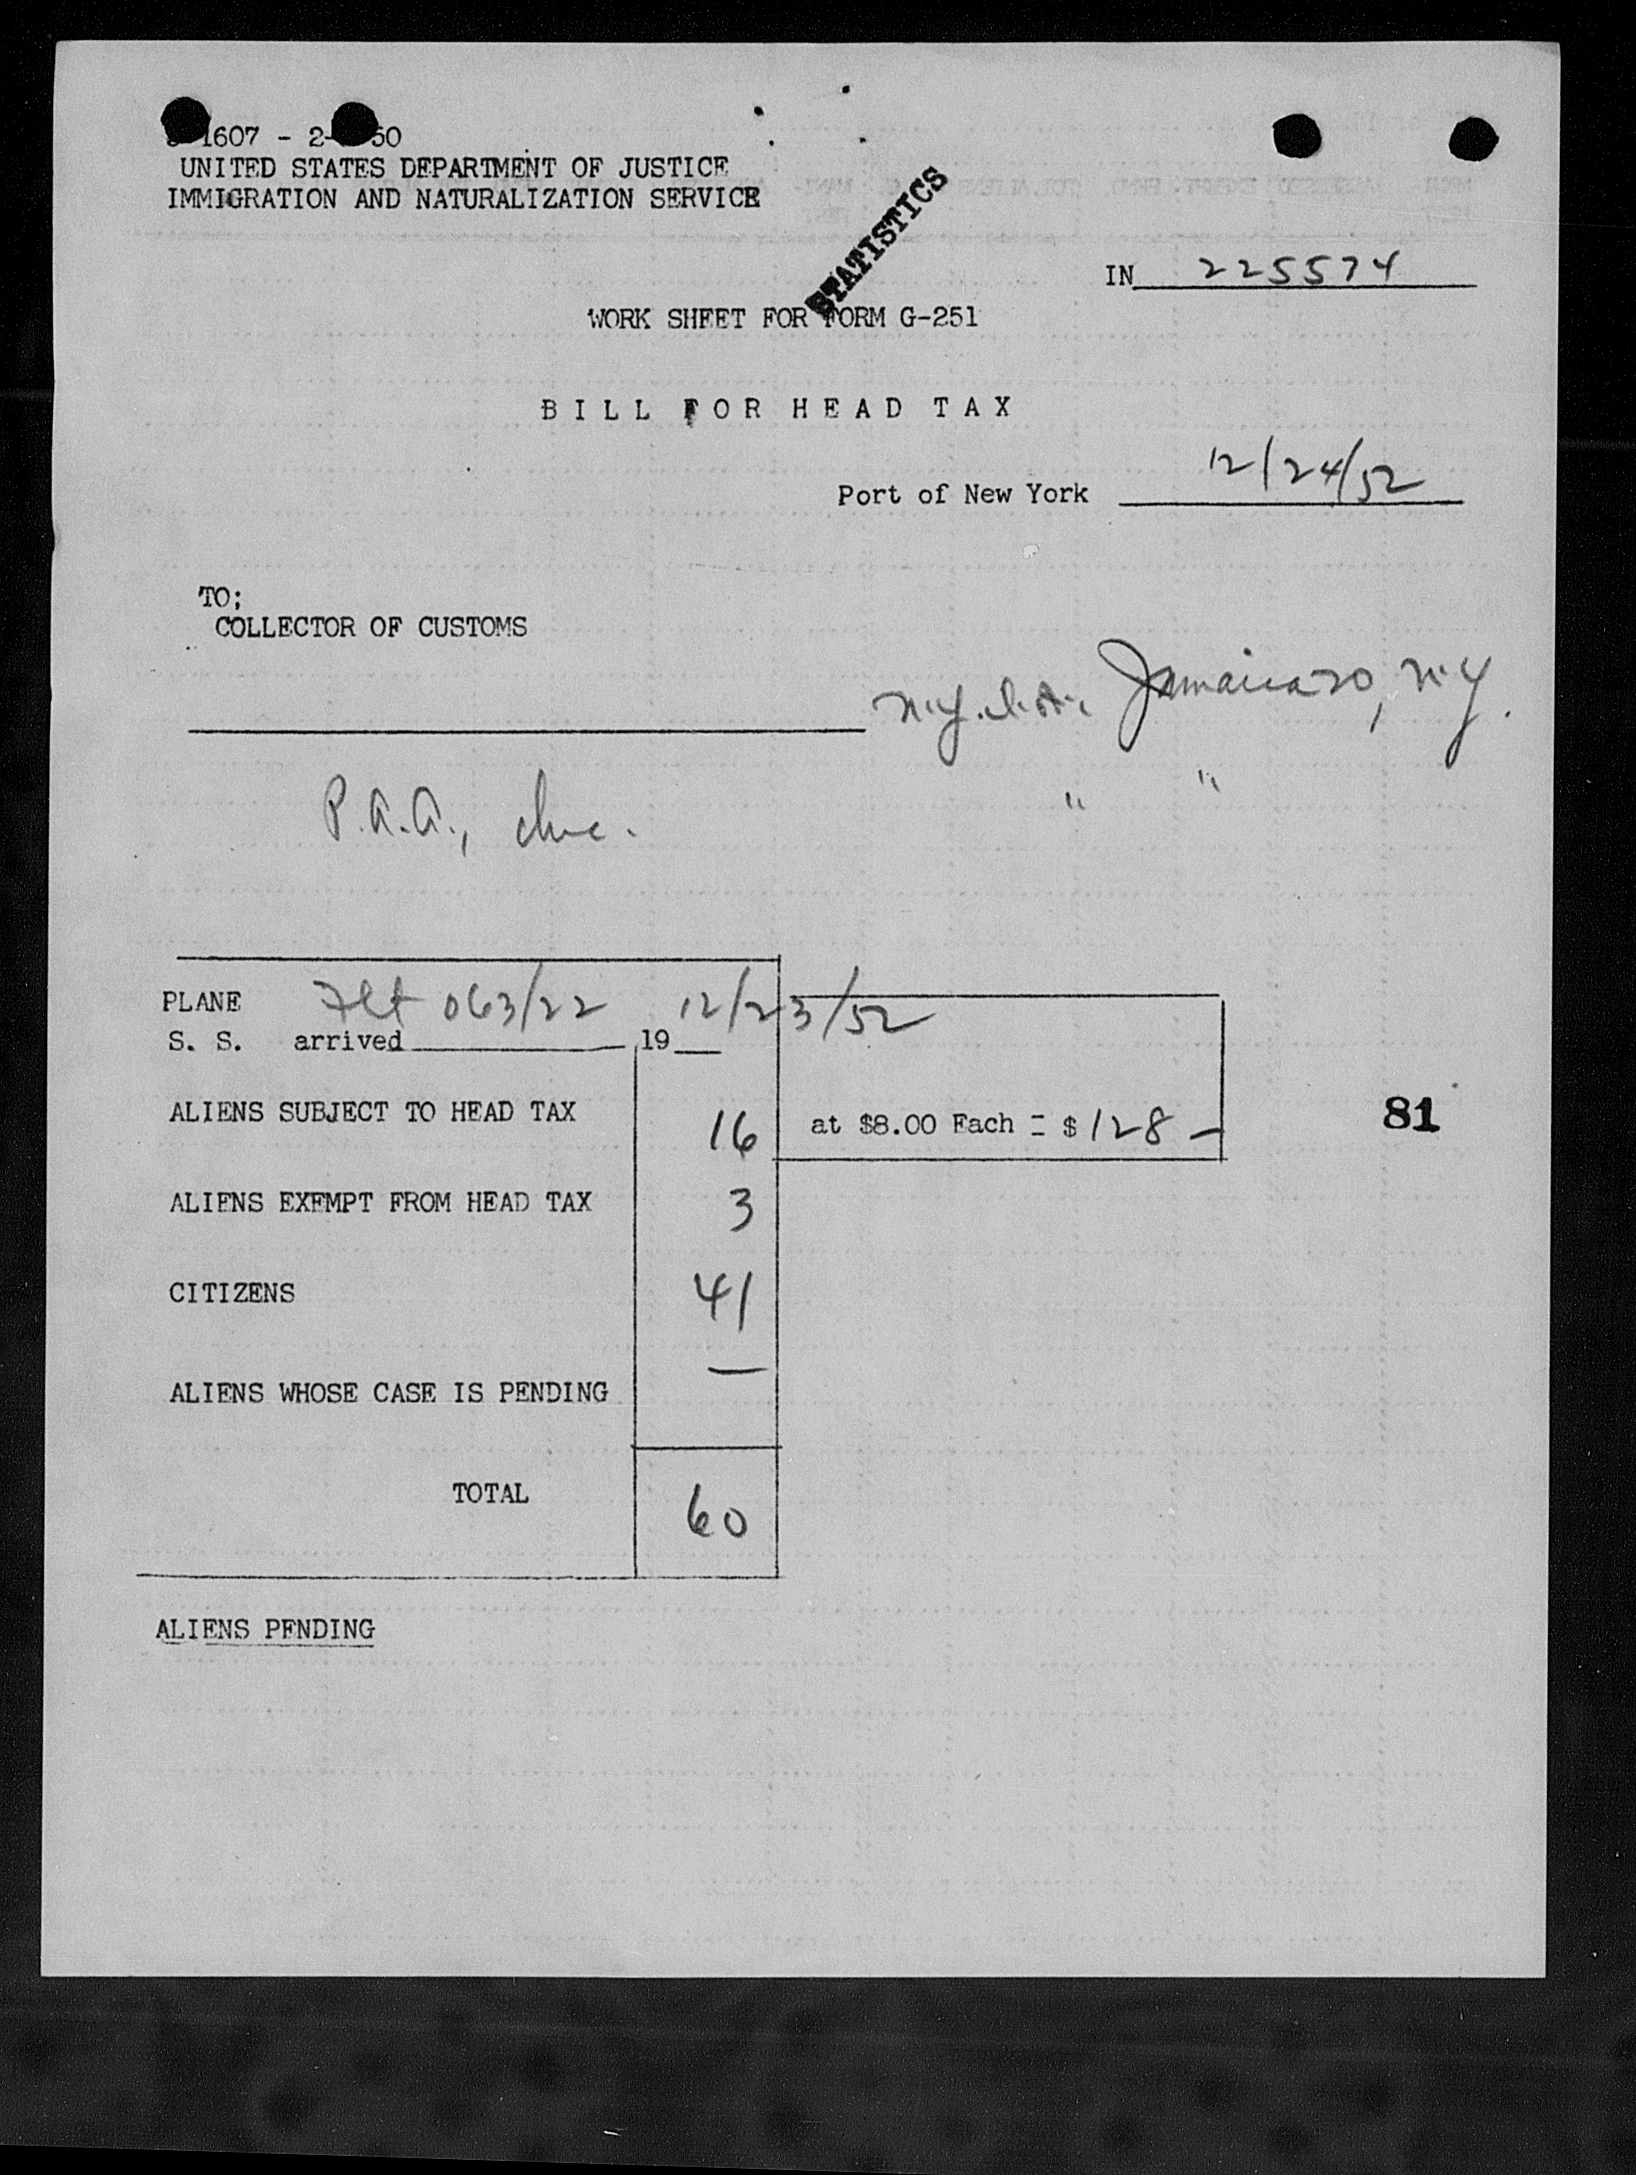 1607 - 2- 50
UNITED STATES DEPARTMENT OF JUSTICE
IMMIGRATION AND NATURALIZATION SERVICE
STATISTICS
IN 225574
WORK SHEET FOR FORM G-251
BILL FOR HEAD TAX
Port of New York 12/24/52
TO;
COLLECTOR OF CUSTOMS
N.Y.I.A. Jamaica 30, N.Y.
P.A.A., Inc. " "
PLANE Flt 063/22 12/23/52
S. S. arrived 19
ALIENS SUBJECT TO HEAD TAX 16 at $8.00 Each = $128 - 81
ALIENS EXEMPT FROM HEAD TAX 3
CITIZENS 41
ALIENS WHOSE CASE IS PENDING —
TOTAL 60
ALIENS PENDING